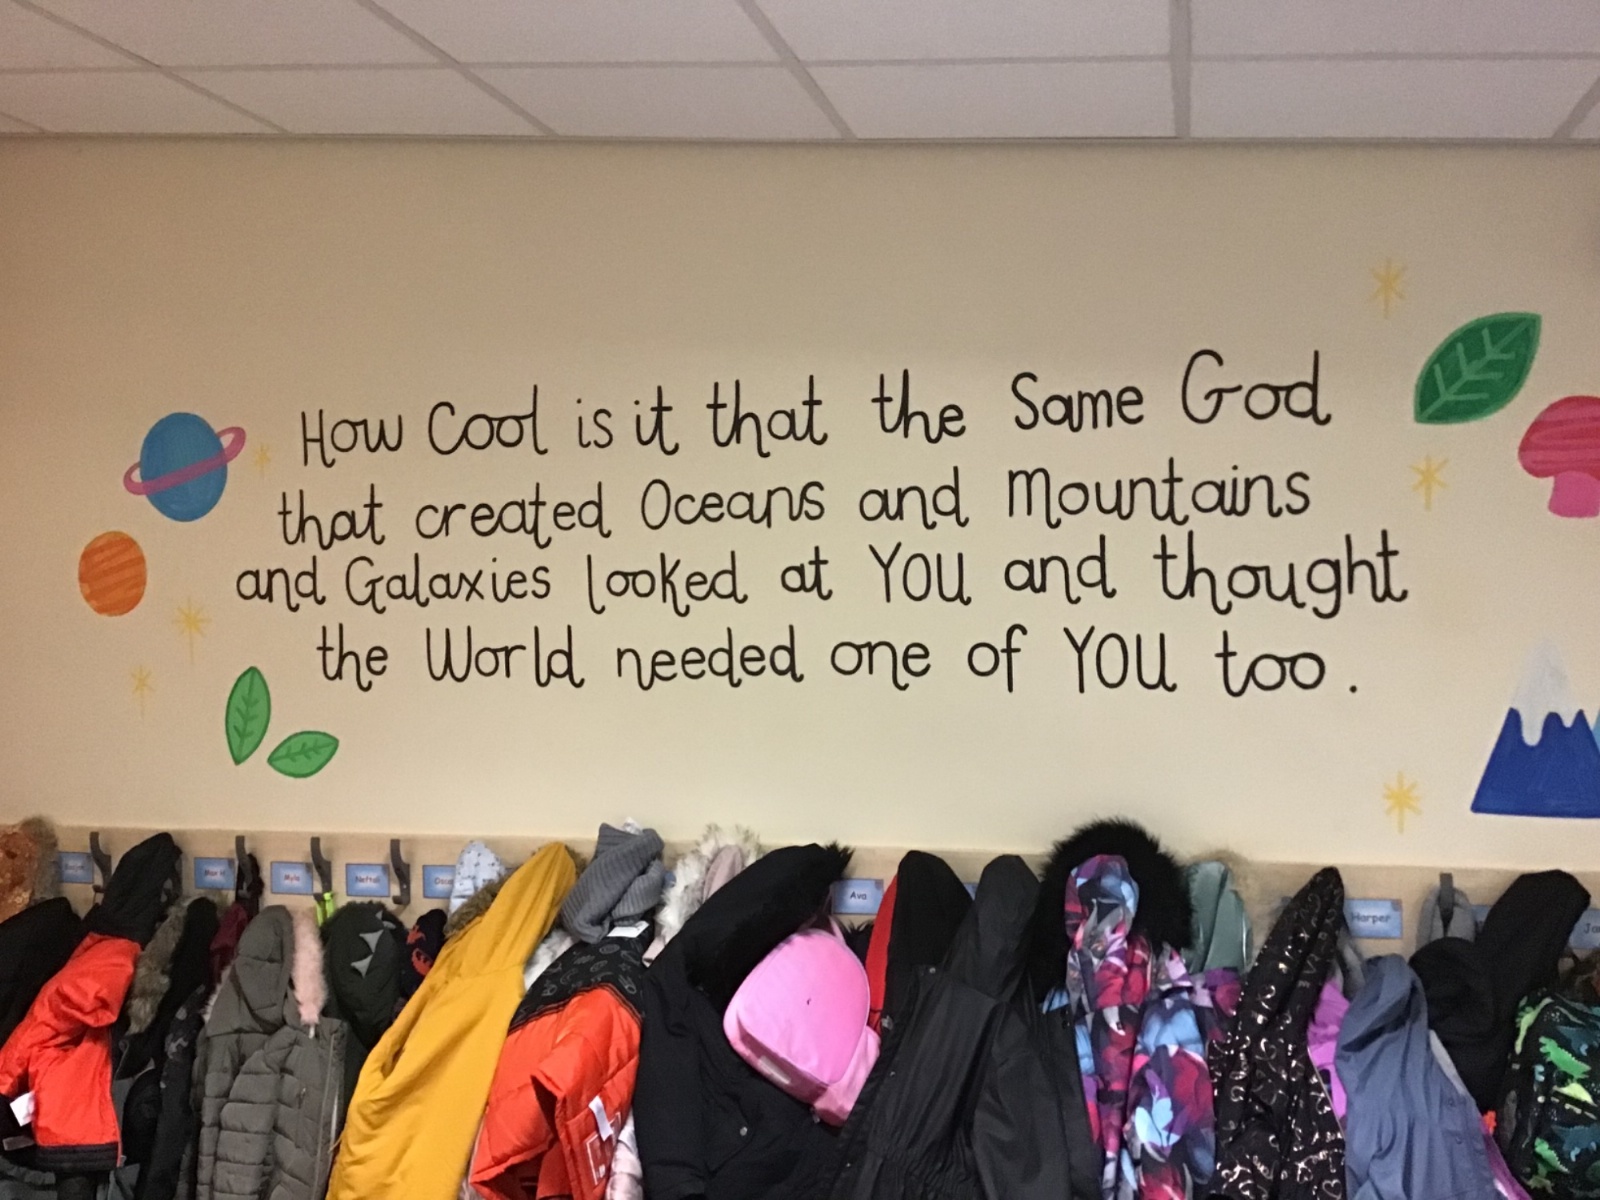 How Cool is it that the Same God
that created Oceans and Mountains
and Galaxies looked at YOU and thought
the World needed one of YOU too.
Myla
Neftali
Ava
Harper